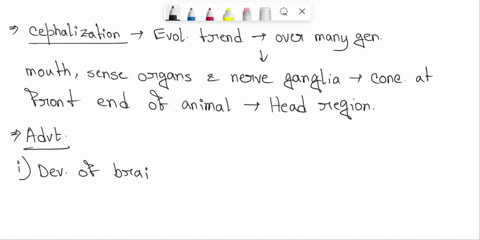 ⇒ Cephalization → Evol. trend → over many gen.
↓
mouth, sense organs & nerve ganglia → conc. at
Front end of animal → Head region.
⇒ Advt.
i) Dev. of brai